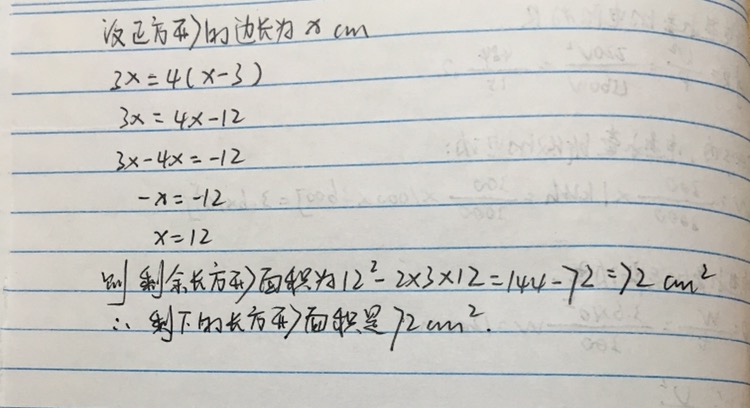 设正方形的边长为 x cm
3x=4(x-3)
3x=4x-12
3x-4x=-12
-x=-12
x=12
则 剩余长方形面积为12²-2×3×12=144-72=72 cm²
∴ 剩下的长方形面积是72cm².